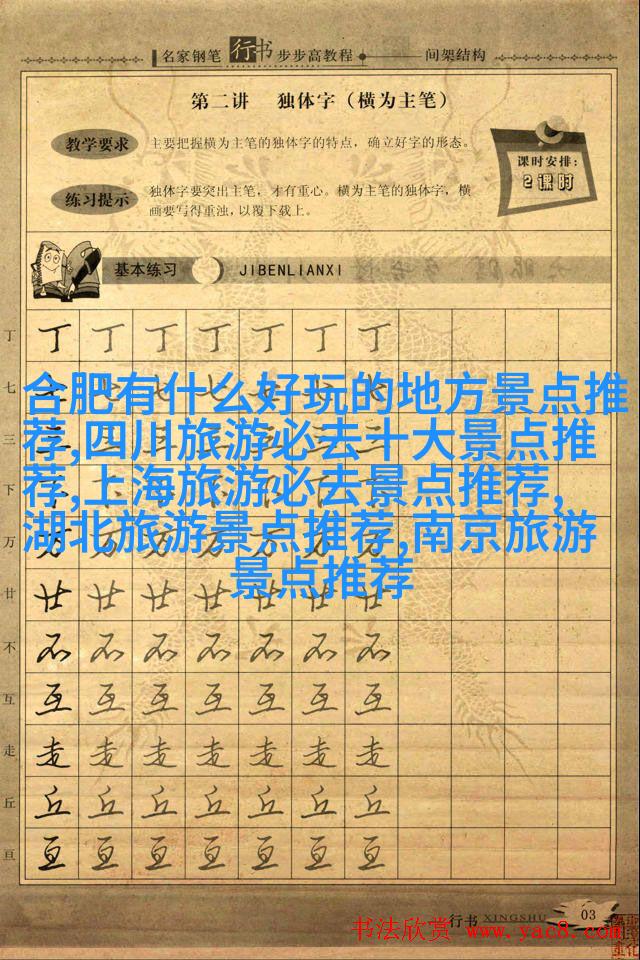 名家钢笔 行书 步步高教程 间架结构
第二讲 独体字（横为主笔）
教学要求 主要把握横为主笔的独体字的特点，确立好字的形态。
课时安排：
2课时
练习提示 独体字要突出主笔，才有重心。横为主笔的独体字，横
画要写得重浊，以覆下载上。
基本练习 JIBENLIANXI
丁 丁 丁 丁 丁 丁 丁 丁
七 七 七 七 七 七 七 七
合肥有什么好玩的地方景点推
荐,四川旅游必去十大景点推
荐,上海旅游必去景点推荐,
湖北旅游景点推荐,南京旅游
景点推荐
三 三 三 三 三 三 三 三
下 下 下 下 下 下 下 下
万 万 万 万 万 万 万 万
廿 廿 廿 廿 廿 廿 廿 廿
不 不 不 不 不 不 不 不
互 互 互 互 互 互 互 互
走 走 走 走 走 走 走 走
丘 丘 丘 丘 丘 丘 丘 丘
亘 亘 亘 亘 亘 亘 亘 亘
行书 XINGSHU 03
书法欣赏 www.yac8.com